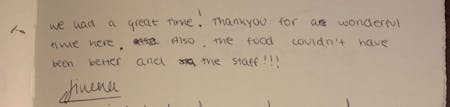 we had a great time! Thankyou for a wonderful
time here. Also, the food couldn't have
been better and the staff!!!